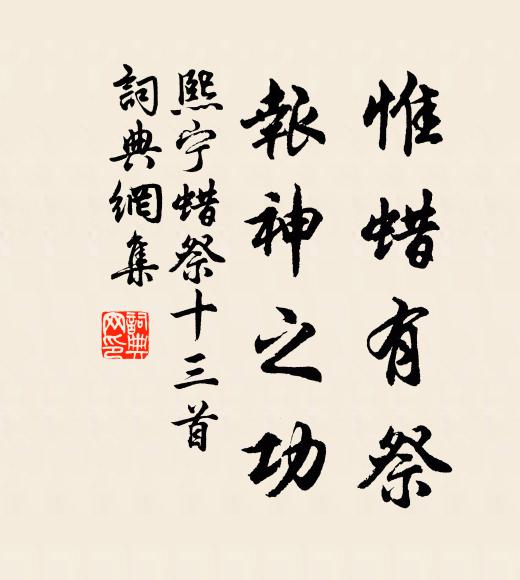 惟蜡有祭
報神之功
熙宁蜡祭十三首
詞典網集
詞典
网印